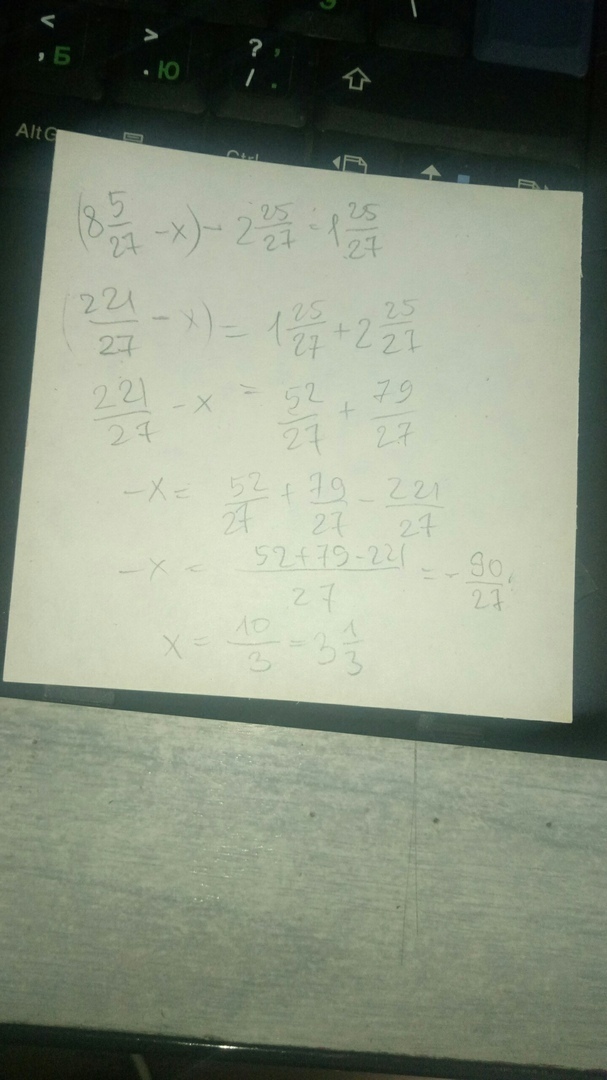 <
, Б
>
. Ю
?
/ .
AltG
Ctrl
(8 5/27 - x) - 2 25/27 = 1 25/27
(221/27 - x) = 1 25/27 + 2 25/27
221/27 - x = 52/27 + 79/27
-x = 52/27 + 79/27 - 221/27
-x = 52+79-221/27 = - 90/27
x = 10/3 = 3 1/3